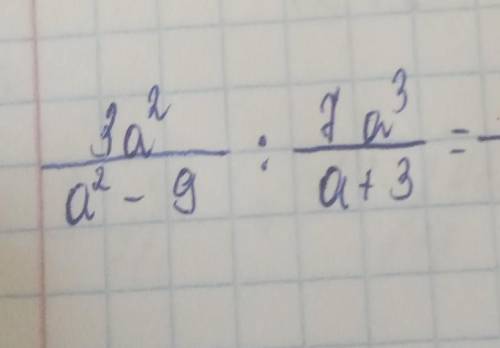 3a² / (a² - 9) : 7a³ / (a + 3) =